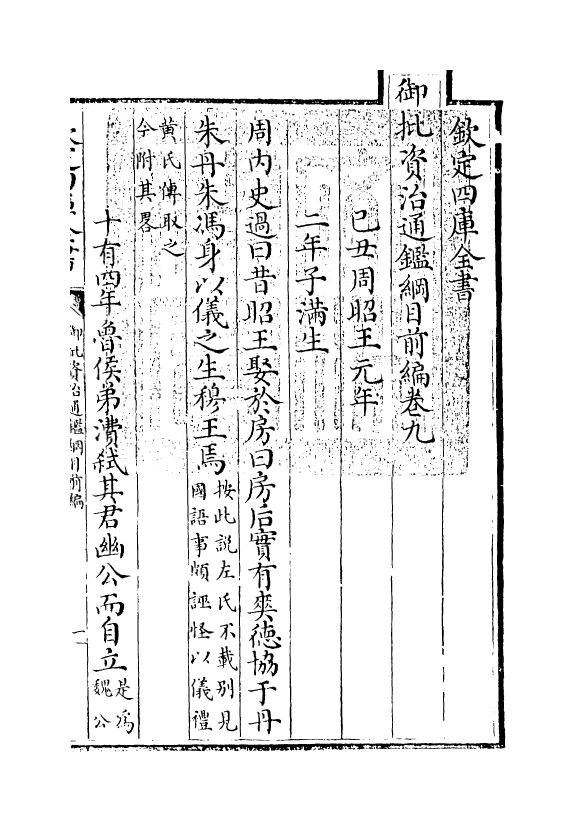 欽定四庫全書
御批資治通鑑綱目前編卷九
己丑周昭王元年
二年子滿生
周内史過曰昔昭王娶於房曰房后實有爽徳協于丹
朱丹朱馮身以儀之生穆王焉按此説左氏不載别見
國語事頗誣怪以儀禮
黄氏傳取之
今附其畧
十有四年魯侯弟㵒弑其君幽公而自立是為
魏公
御批資治通鑑綱目前編
一